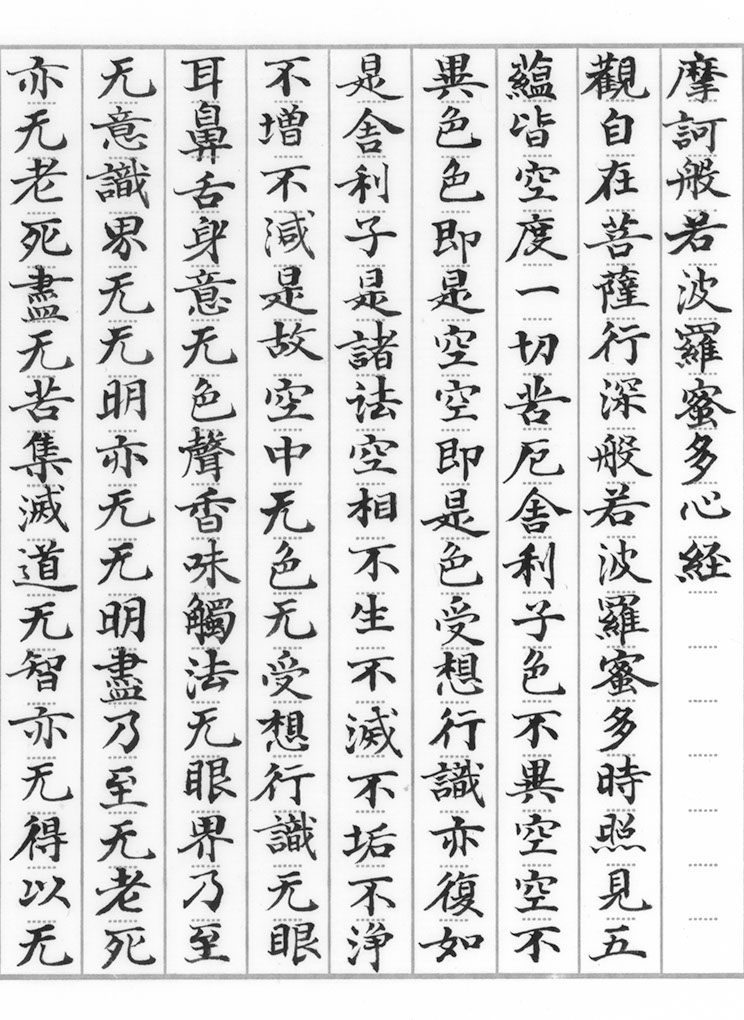 摩訶般若波羅蜜多心経
觀自在菩薩行深般若波羅蜜多時照見五
蘊皆空度一切苦厄舎利子色不異空空不
異色色即是空空即是色受想行識亦復如
是舎利子是諸法空相不生不滅不垢不浄
不増不減是故空中无色无受想行識无眼
耳鼻舌身意无色聲香味觸法无眼界乃至
无意識界无无明亦无无明盡乃至无老死
亦无老死盡无苦集滅道无智亦无得以无